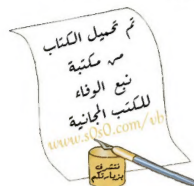 تم تحميل الكتاب
من مكتبة
نبع الوفاء
للكتب المجانية
www.s0s0.com/vb
نتشرف
بزيارتكم